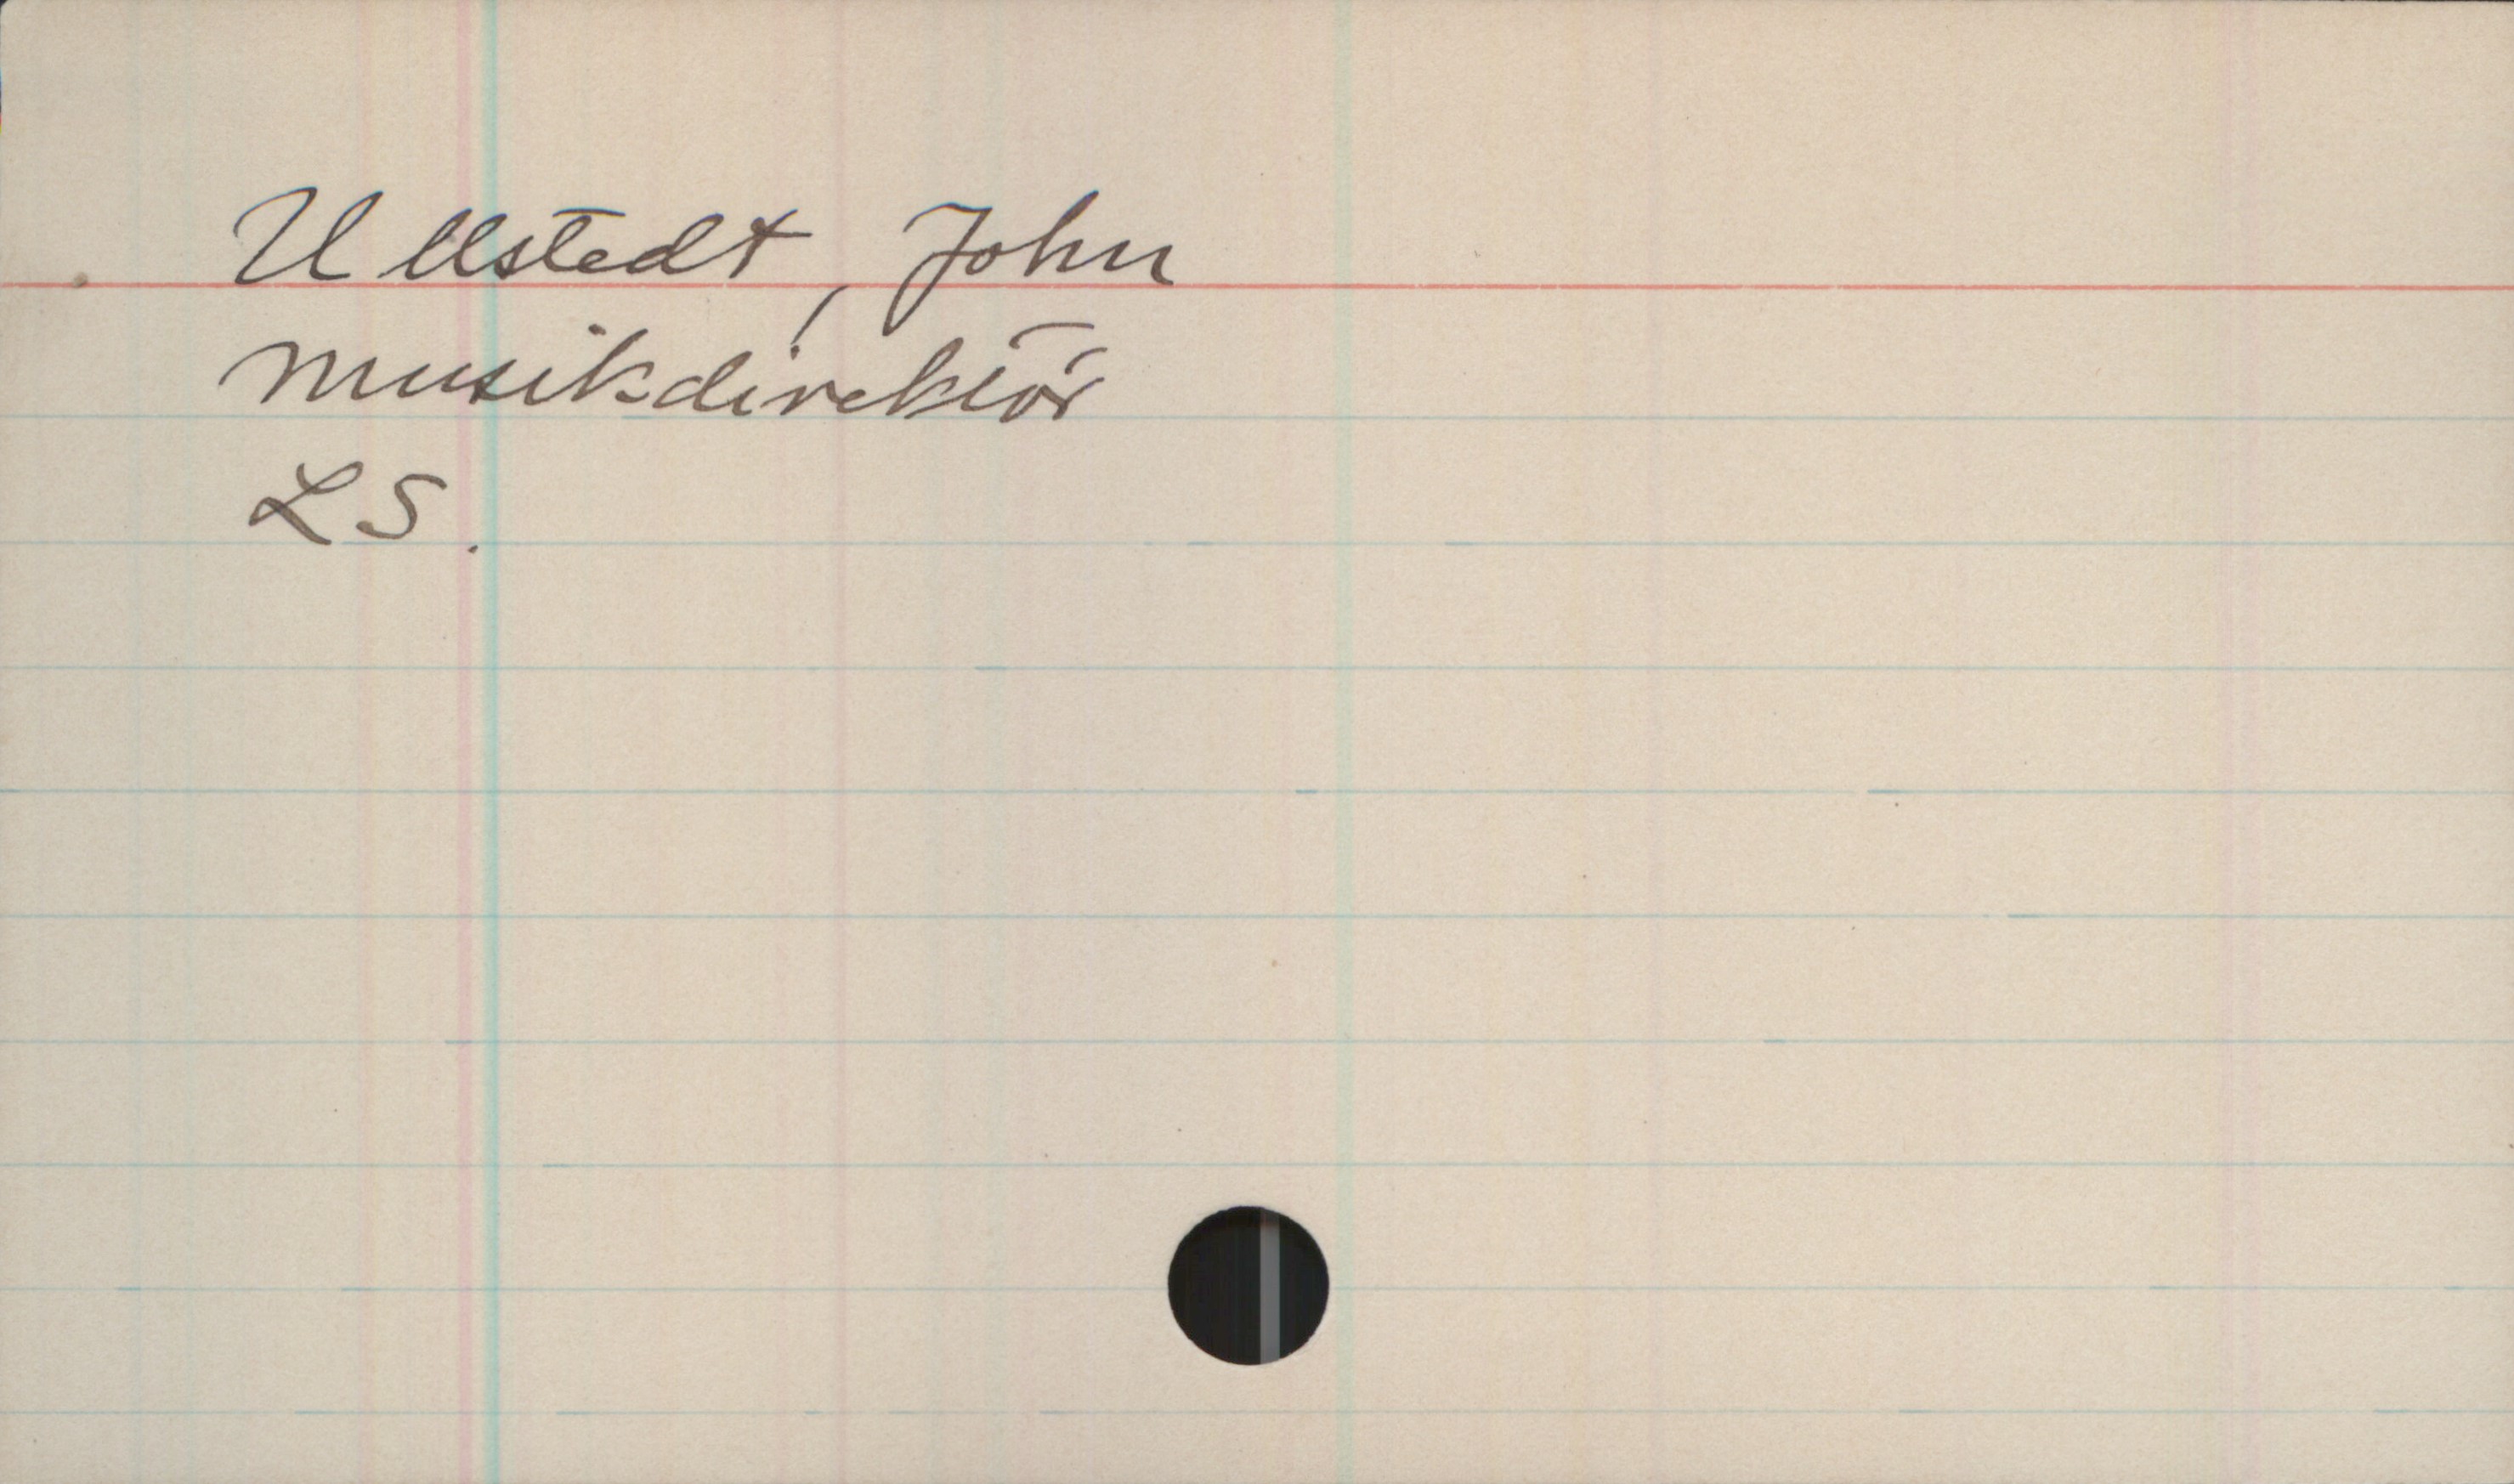 Ullstedt, John
musikdirektör
LS.